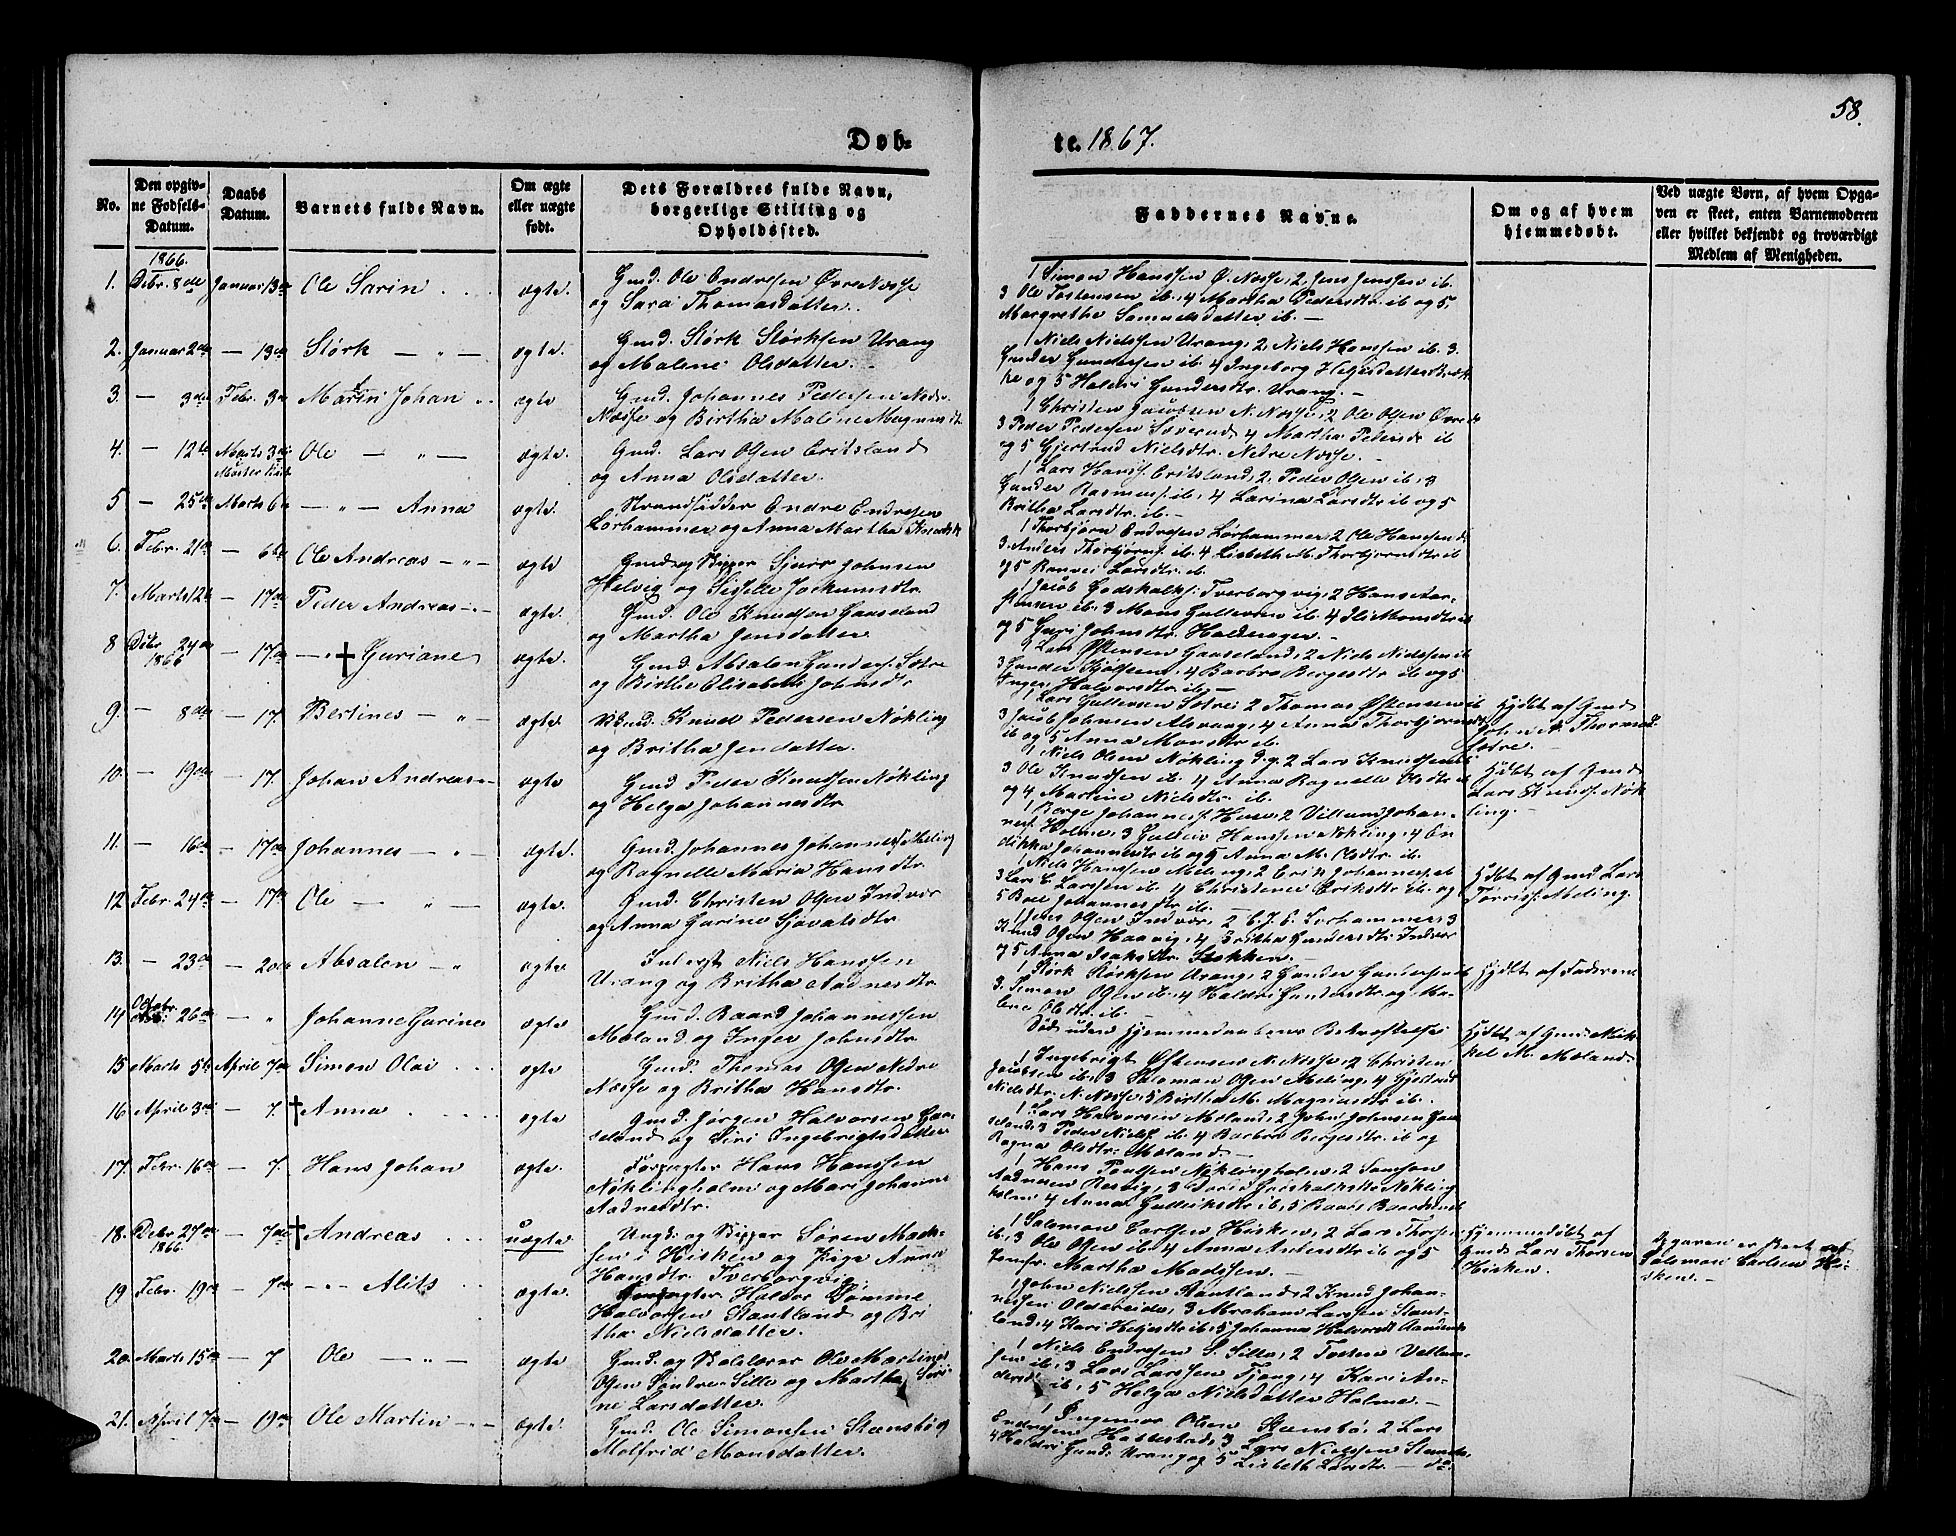 58.
Døb-
te. 1867.
No.
Den opgiv-
ne Fødsels-
Datum.
Daabs
Datum.
Barnets fulde Navn.
Om ægte
eller uægte
født.
Dets Forældres fulde Navn,
borgerlige Stilling og
Opholdssted.
Faddernes Navne.
Om og af hvem
hjemmedøbt.
Ved uægte Børn, af hvem Opga-
ven er skeet, enten Barnemoderen
eller hvilket bekjendt og troværdigt
Medlem af Menigheden.
1866.
1. Debr. 8de Januar 13de Ole Sarin ægte. Gmd. Ole Endresen Øvre Nosse
og Sara Thomasdatter.
1 Simon Hanssen Ø. Nosse, 2 Jens Jenssen ib.
3 Ole Tostensen ib. 4 Martha Pedersdtr ib og 5,
Margrethe Samuelsdatter ib. —
2. Januar 2den — 13de Størk — " — ægte. Gmd. Størk Størksen Urang
og Malene Olsdatter. —
1 Niels Nielssen Urang, 2, Niels Hanssen ib. 3.
Gunder Gundersen ib. 4 Ingeborg Helgesdatter
og 5 Haldri Gundersdtr. Urang. —
3. — 3die Febr. 3die Martin Johan ægte Gmd. Johannes Pedersen Nedre
Nosse og Birtha Malene Magnusdtr.
1 Christen Jacobsen N. Nosse, 2 Ole Olsen Øvre
3 Peder Pedersen 4 Martha Pedersdtr ib
og 5 Gjertrud Nielsdtr. Nedre Nosse. —
4. — 12te Marts 3die Ole — " — ægte. Gmd. Lars Olsen Eritsland
og Anna Olsdatter.
1 Lars Hanss. Eritsland, 2, Peder Olsen ib, 3
Gunder Rasmuss. ib, 4 Larina Larsdtr ib og 5
Britha Larsdtr. ib. —
5 — 25de Marts 6te — " — Anna ægte. Strandsidder Endre Endresen
Lørhammer og Anna Martha Knudsdtr.
1 Thorbjørn Endresen Lørhammer, 2 Ole Hanssen
3. Anders Thorbjørns. ib. 4 Lisbeth M. Thorbjørnsdtr ib
og 5 Larsdtr. ib.
6. Febr. 21de — 6te Ole Andreas — " — ægte Gmd. og Skipper Sjurs Johnsen
Helvig og Siselle Jochumsdtr.
1 Jacob Godskalks. Tverborgvig, 2 Hans
ib, 3 Mons Gulleven ib. 4
og 5 Guri Johnsdtr. Haldragen. —
7. Marts 12te — 17de Peder Andreas — " — ægte. Gmd. Ole Knudsen Gaaseland
og Martha Jensdatter
1 Lars Østensen Gaaseland, 2 Niels Nielssen ib
3 Gunder 4 Barbro Bergesdtr ib og 5
Inger Halvorsdtr. ib. —
8 Debr 24de
1866 — 17de — " † Guriane ægte. Gmd. Absalon Gunders. Sætre
og Birthe Elisabeth Johnsdtr
1 Lars Gullevsen Sætre, 2 Thomas Østensen ib
3 Jacob Johnsen Alsvaag, 4 Anna Thorbjørnsdtr
ib og 5 Anna Monsdtr ib.
Hjdbt af Gmd
John A. Thormod.
Sætre. —
9. — 8de — 17. Bertines — " — ægte. Gmd. Knud Pedersen Nøkling
og Britha Jensdatter.
1 Niels Olsen Nøkling 2 Lars Knudsen
3 Ole Knudsen ib. 4 Anna Ragnelle Olsdtr ib
og 4 Martine Nielsdtr. ib.
Hjdbt af Gmd
Lars Knuds. Nøk-
ling. —
10. — 19de — 17. Johan Andreas — ægte Gmd Peder Knudsen Nøkling
og Helga Johannesdtr
1 Berge Johanness. 2 Villum Johan-
ness. Holme, 3 Gulleiv Hanssen Nøkling, 4 En
Johannesdtr ib og 5 Anna M. Olsdtr. ib.
11. — 16de — 17de Johannes — " — ægte. Gmd. Johannes Johannes. Meling
og Ragnelle Maria Hansdtr.
1 Niels Hanssen Meling, 2 Erik Johanness. ib
3 Lars C. Larssen ib. 4 Christense Eriksdtr ib og
5 Boel Johannesdtr ib.
Hjdbt af Gmd Lars
Tørriss. Meling.
12 Febr. 24de — 17de Ole — " — ægte. Gmd. Christen Olsen Indvær
og Anna Gurine Sjovatsdtr.
1 Jens Olsen Indvær, 2 C. J. E. Lorhammer, 3
Knud Olsen Haavig, 4 Britha Gundersdtr. Indvær
og 5 Anna Isaksdtr. Stokken. —
13. — 23de — 20de Absalon — " ægte. Niels Hanssen
Urang og Britha Aadnesdtr.
1 Størk Størksen Urang, 2 Gunder Gundersen ib
3. Simon Olsen ib. 4 Haldri Gundersdtr og Ma-
lene Olsdtr. ib.
Hjdbt af Faderen
14 Octobr. 26de — " Johanne Gurine ægte Gmd. Baard Johannessen
Moland og Inger Johnsdtr.
Død uden Hjemmedaabens Bekræftelse
Hjdbt af Gmd. Mik-
kel M. Moland
15 Marts 5te April 7de Simon Olai ægte Gmd. Thomas Olsen Nedre
Nosse og Britha Hansdtr.
1 Ingebrigt Østensen N. Nosse, 2 Christen
Jacobsen ib. 3 Salomon Olsen Meling, 4 Gjertrud
Nielsdtr. N. Nosse, 5 Birtha M. Magnusdtr ib.
16. April 3die — 7. † Anna ægte Gmd. Jørgen Halvorsen Gaa-
seland og Siri Ingebrigtsdatter
1 Lars Halvorsen Moland, 2 John Johnsen Gaa
seland, 3 Peder Niels. ib. 4 Barbro Bergesdtr. ib og
Ragna Olsdtr. Moland —
17. Febr. 16de — 7. Hans Johan ægte. Forpagter Hans Hanssen
Nøklingholm og Mari Johanne
Aadnesdtr.
1 Hans Poulsen Nøklingholm, 2 Samson
Aadnesen 3 Dorte Godskalksdtr Nøkling
holm, 4 Anna Gulleiksdtr ib, 5 Baard Baardsen ib
18. Debr. 27de
1866. — 7de † Andreas uægte Ungk. og Skipper Søren Mad-
sen i Hisken og Pige Anna
Hansdtr. Tverborgvig.
1 Salomon Carlsen Hisken, 2 Lars Thorsen
ib. 3 Ole Olsen ib. 4 Anna Andersdtr ib og 5
Jomfr. Martha Madssen. —
Hjemmedøbt af
Gmd. Lars Thorsen
Hisken.
Opgaven er skeet af
Salomon Carlsen Hi-
sken. —
19 Febr. 19de — 7de — " — Alits ægte. Forpagter Halvor Tømme
Halvorsen Stautland og Bri
tha Nielsdatter.
1 John Nielssen Stautland, 2 Knud Johan-
nessen Oldereide, 3 Abraham Larssen Staut-
land, 4 Kari Helgesdtr ib, 5 Johanna Halvorsdtr
20. Marts 15de — 7 Ole — " — ægte Gmd. og Skolelærer Ole Martinus
Olsen Søndre Sille og Martha Seri-
ne Larsdatter.
1 Niels Endresen S. Sille, 2 Tosten
ib, 3 Lars Larssen Tjong, 4 Kari An-
dersd. ib, 5 Helga Nielsdatter Holme. —
21. April 7de — 19de Ole Martin — " — ægte. Gmd. Ole Simonsen Stensbø
Malfrid Monsdatter.
1 Ingemar Olsen Stensbø, 2 Lars
Endresen Hattestad, 3 Lars Nielssen Stensbø
4 Haldri Gund. Urang og 5 Lisbeth Larsdtr — do.